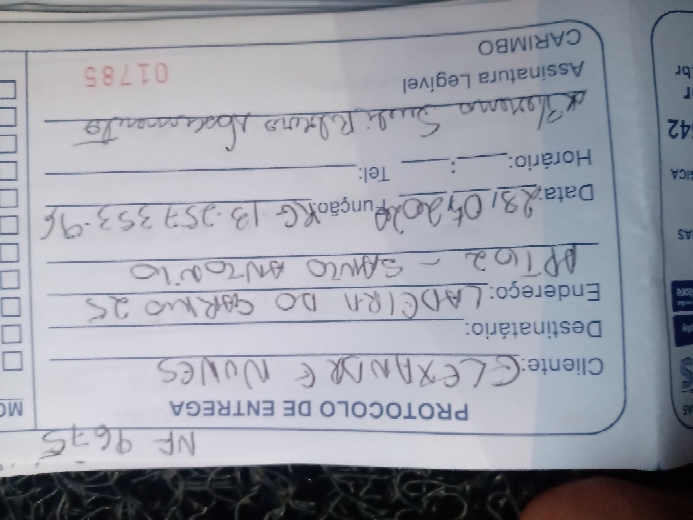 NF 9675
PROTOCOLO DE ENTREGA
Cliente: GLEXANDRE NUNES
Destinatário:
Endereço: LADEIRA DO CARMO 25
APT 102 - SANTO ANTONIO
Data: 23/05/2020 Função: RG 13.257353-96
Horário: : Tel:
Sueli Ribeiro Nascimento
Assinatura Legível
CARIMBO
01785
MO
42